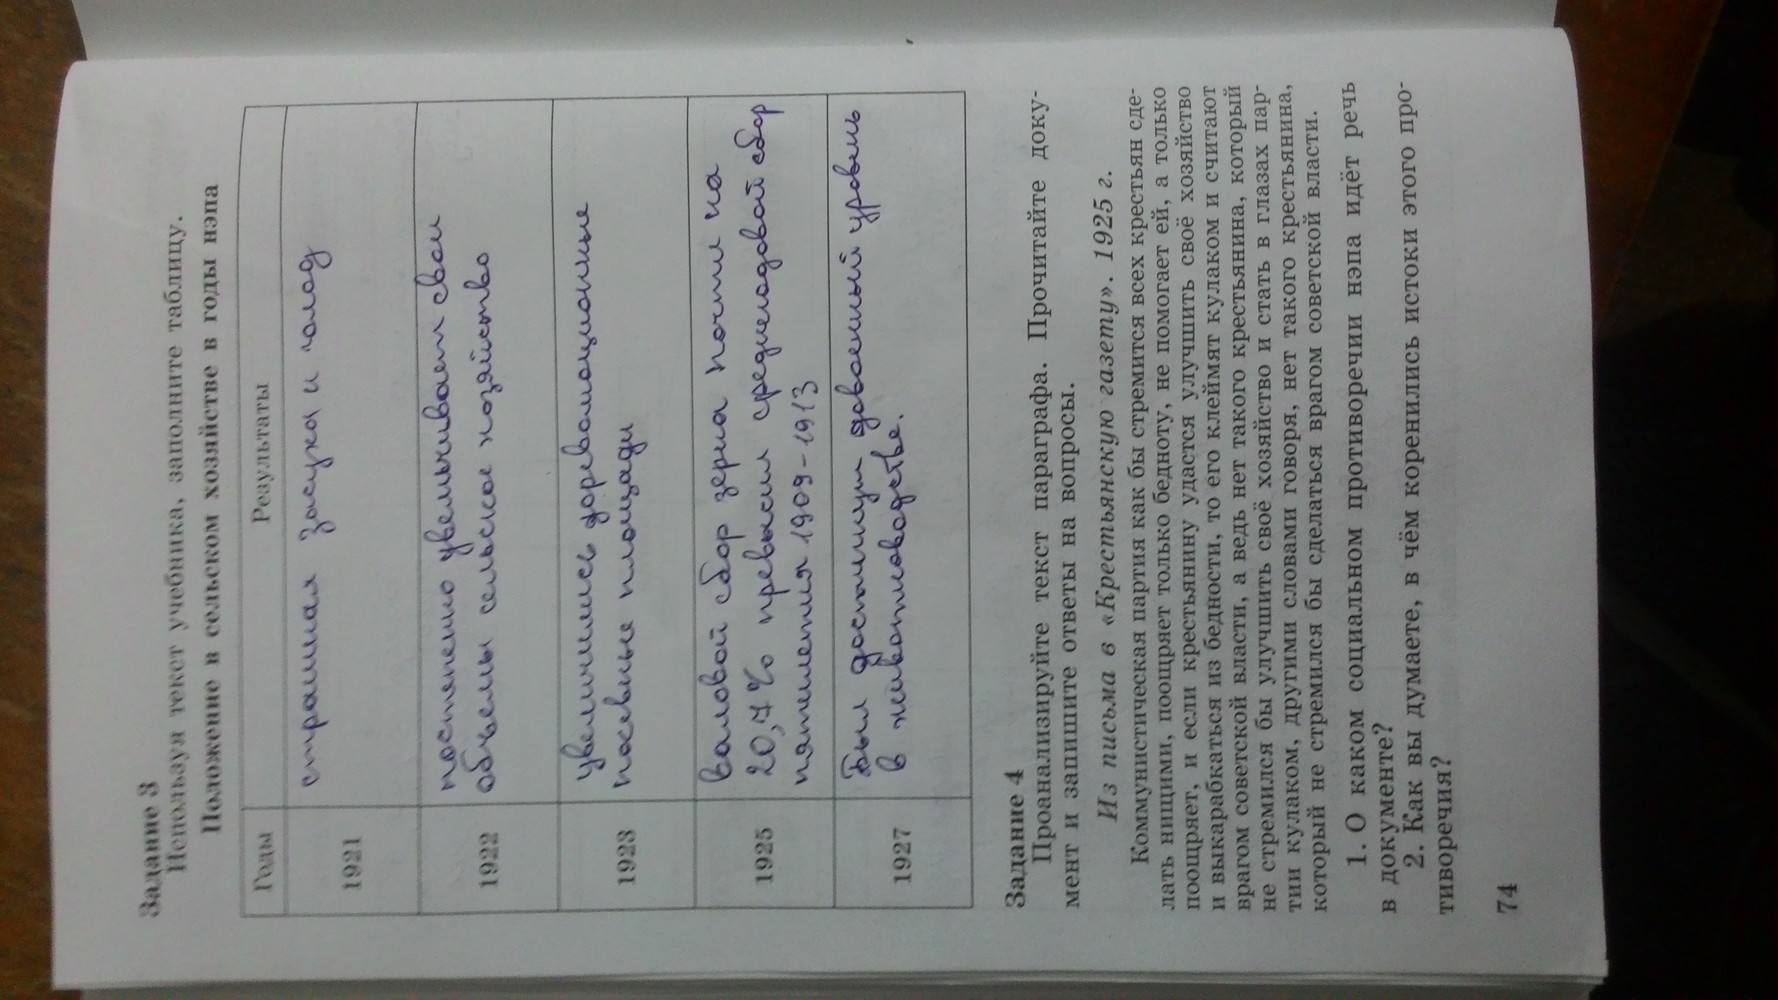 Задание 3
Используя текст учебника, заполните таблицу.
Положение в сельском хозяйстве в годы нэпа
Годы Результаты
1921 страшная засуха и голод
1922 постепенно увеличивает свои
объемы сельское хозяйство
1923 увеличились дореволюционные
посевные площади
1925 валовой сбор зерна почти на
20,7% превысил среднегодовой сбор
пятилетия 1909-1913
1927 Был достигнут довоенный уровень
в животноводстве.
Задание 4
Проанализируйте текст параграфа. Прочитайте доку-
мент и запишите ответы на вопросы.
Из письма в «Крестьянскую газету». 1925 г.
Коммунистическая партия как бы стремится всех крестьян сде-
лать нищими, поощряет только бедноту, не помогает ей, а только
поощряет, и если крестьянину удастся улучшить своё хозяйство
и выкарабкаться из бедности, то его клеймят кулаком и считают
врагом советской власти, а ведь нет такого крестьянина, который
не стремился бы улучшить своё хозяйство и стать в глазах пар-
тии кулаком, другими словами говоря, нет такого крестьянина,
который не стремился бы сделаться врагом советской власти.
1. О каком социальном противоречии нэпа идёт речь
в документе?
2. Как вы думаете, в чём коренились истоки этого про-
тиворечия?
74